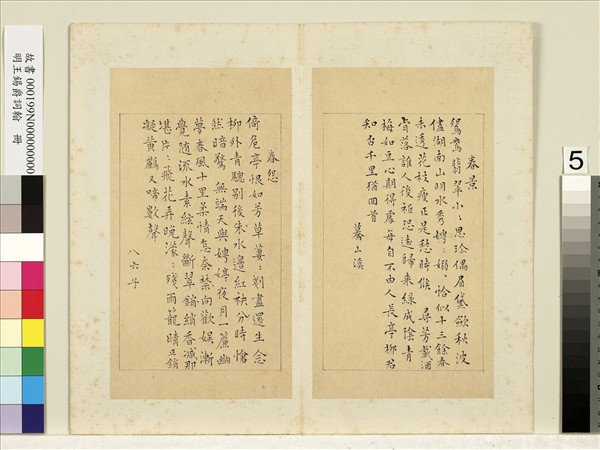 故書 000199N000000000
明王錫爵詞翰 冊
5
春景
鴛鴦翡翠小〻思珍偶眉黛斂秋波
儘湖南山明水秀娉〻嫋〻恰似十三餘春
未透花枝瘦正是愁時候 尋芳載酒
肯落誰人後秪恐遠歸來綠成陰青
梅如豆心期得處每自不由人長亭柳君
知否千里猶回首
驀山溪
春怨
倚危亭恨如芳草萋〻剗盡還生念
柳外青驄別後朱水邊紅袂分時愴
然暗驚 無端天與娉婷夜月一簾幽
夢春風十里柔情怎奈禁向歡娛漸
覺隨流水素絃聲斷翠綃香減那
堪片〻飛花弄晚濛〻殘雨籠晴正銷
凝黃鸝又啼數聲
八六子